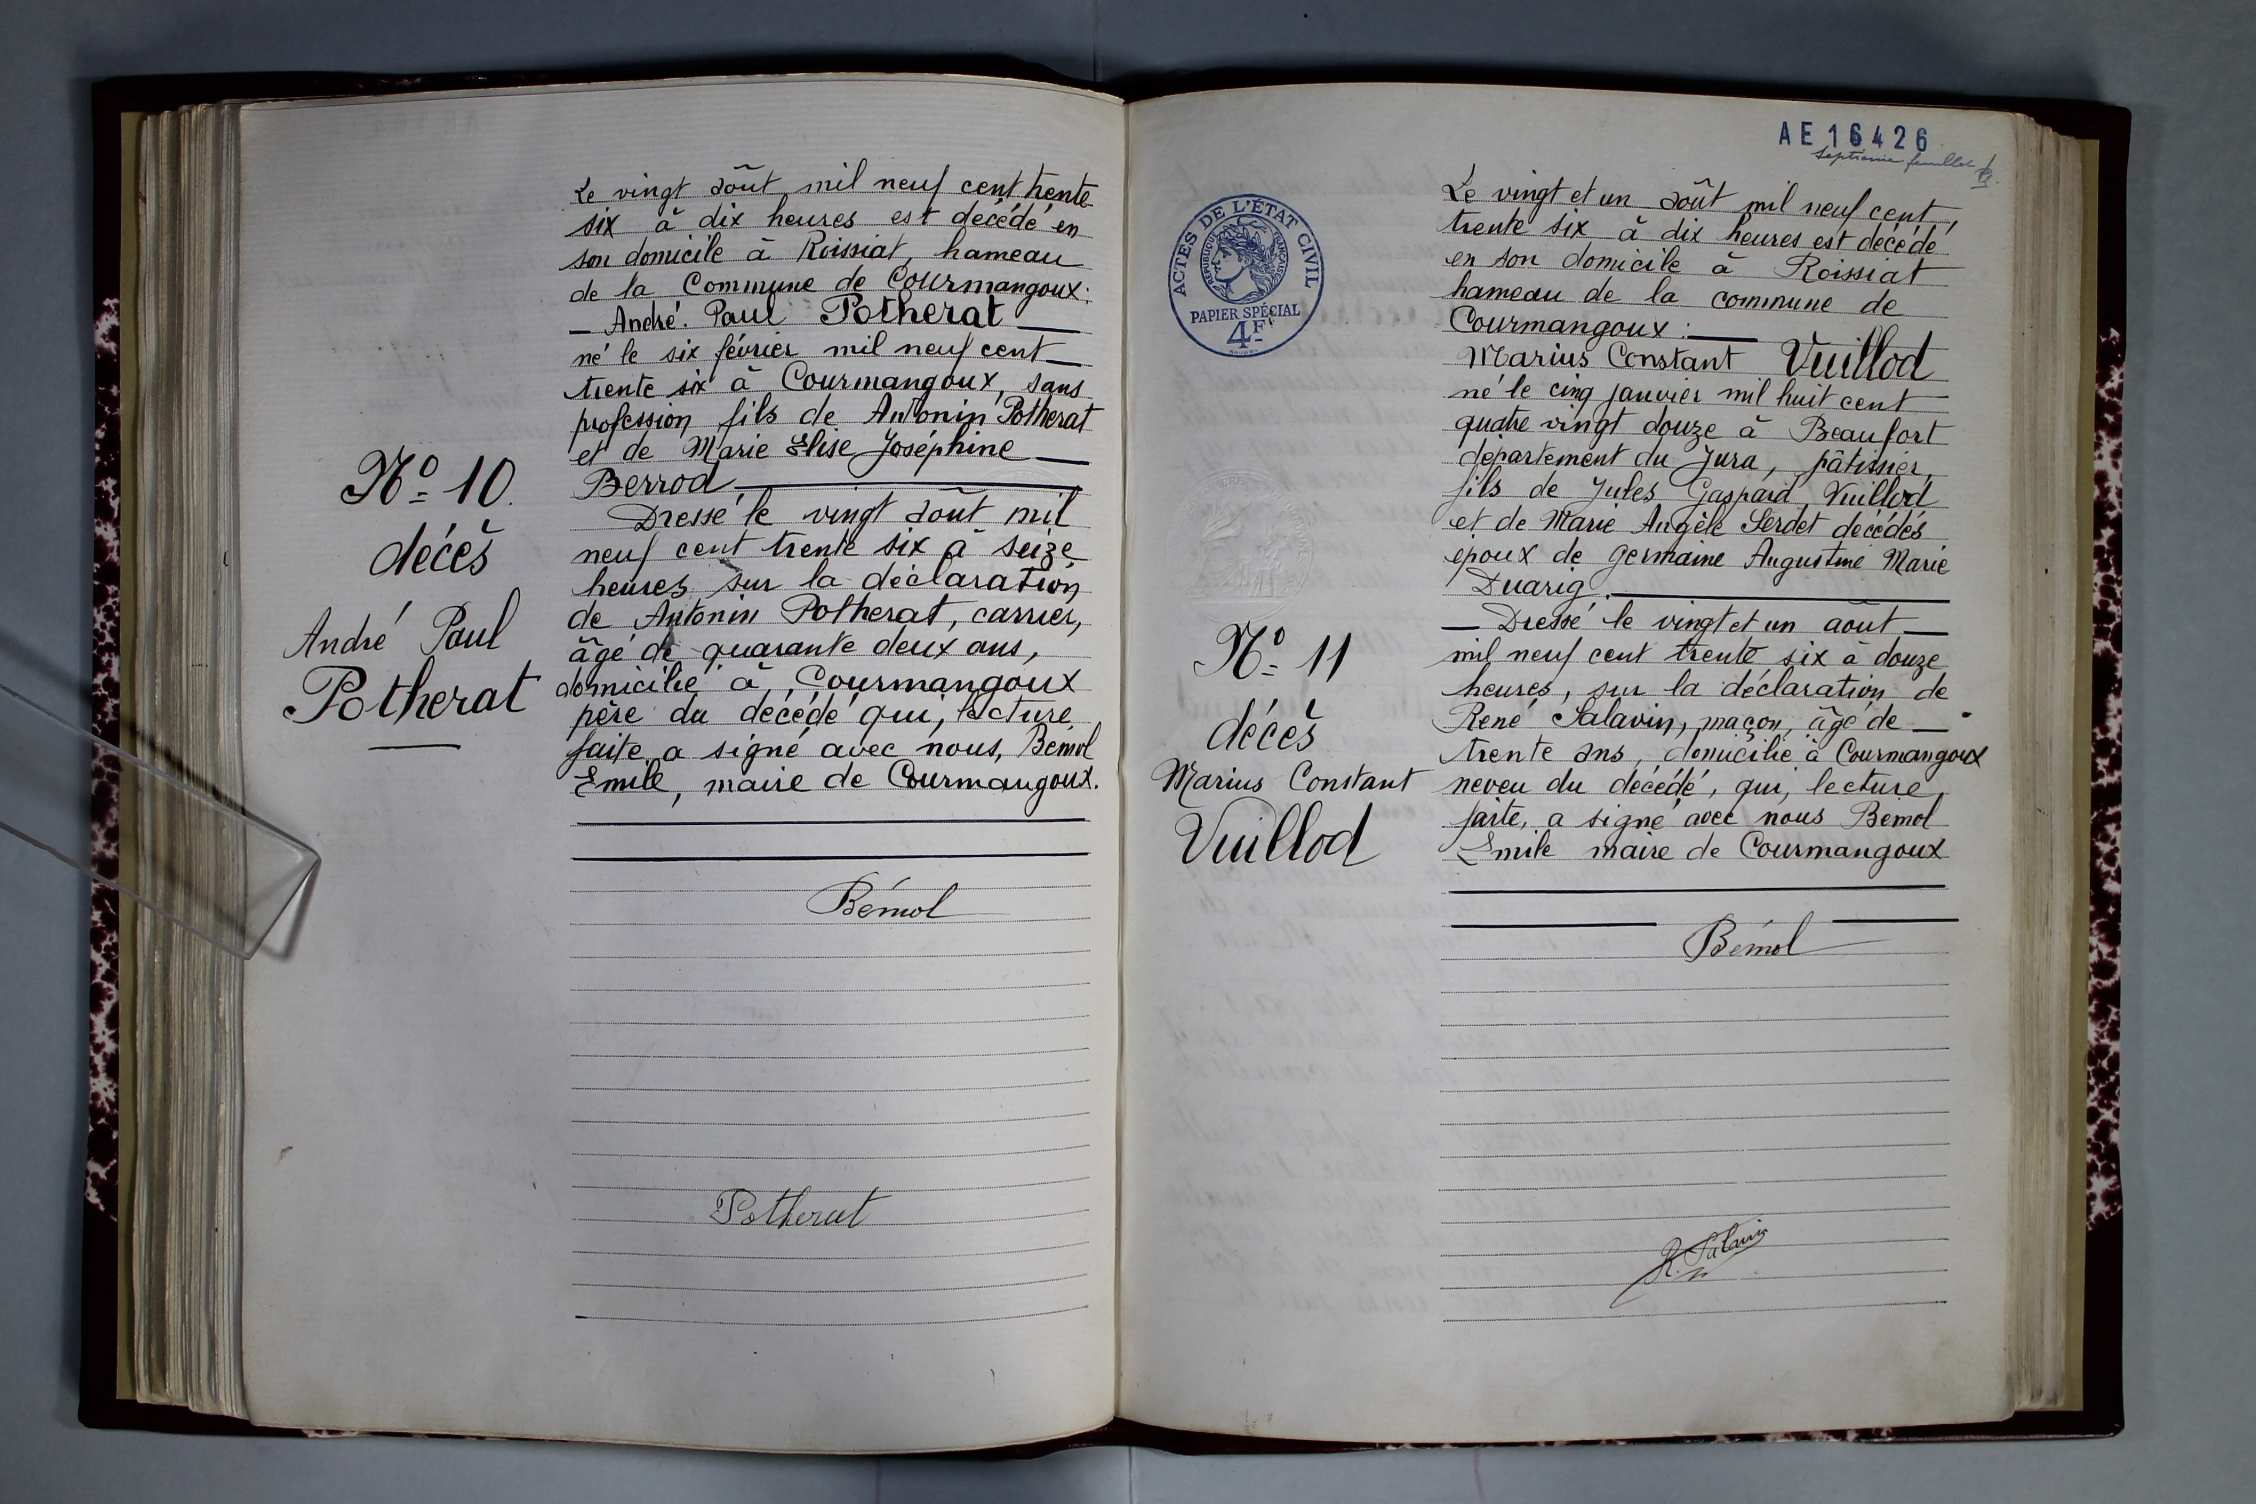 Le vingt août mil neuf cent trente
six à dix heures est décédé en
son domicile à Roissiat, hameau
de la Commune de Courmangoux:
— André. Paul Potherat —
né le six février mil neuf cent —
trente six à Courmangoux, sans
profession fils de Antonin Potherat
et de Marie Elise Joséphine —
Berrod —
Dressé le vingt août mil
neuf cent trente six à seize
heures, sur la déclaration
de Antonin Potherat, carrier,
âgé de quarante deux ans,
domicilié à Courmangoux
père du décédé qui, lecture
faite a signé avec nous, Bémol
Emile, maire de Courmangoux.
No 10.
décès
André Paul
Potherat
Bémol
Potherat
AE 16426
septième feuillet
ACTES DE L'ÉTAT CIVIL
RÉPUBLIQUE FRANÇAISE
PAPIER SPÉCIAL
4F
Le vingt et un août mil neuf cent
trente six à dix heures est décédé
en son domicile à Roissiat
hameau de la commune de
Courmangoux : —
Marius Constant Vuillod
né le cinq janvier mil huit cent
quatre vingt douze à Beaufort
département du Jura, pâtissier,
fils de Jules Gaspard Vuillod
et de Marie Angèle Serdet décédés
époux de Germaine Augustine Marie
Duarig. —
— Dressé le vingt et un août —
mil neuf cent trente six à douze
heures, sur la déclaration de
René Salavin, maçon, âgé de —
trente ans, domicilié à Courmangoux
neveu du décédé, qui, lecture
faite, a signé avec nous Bémol
Emile maire de Courmangoux
No 11
décès
Marius Constant
Vuillod
Bémol
R. Salavin